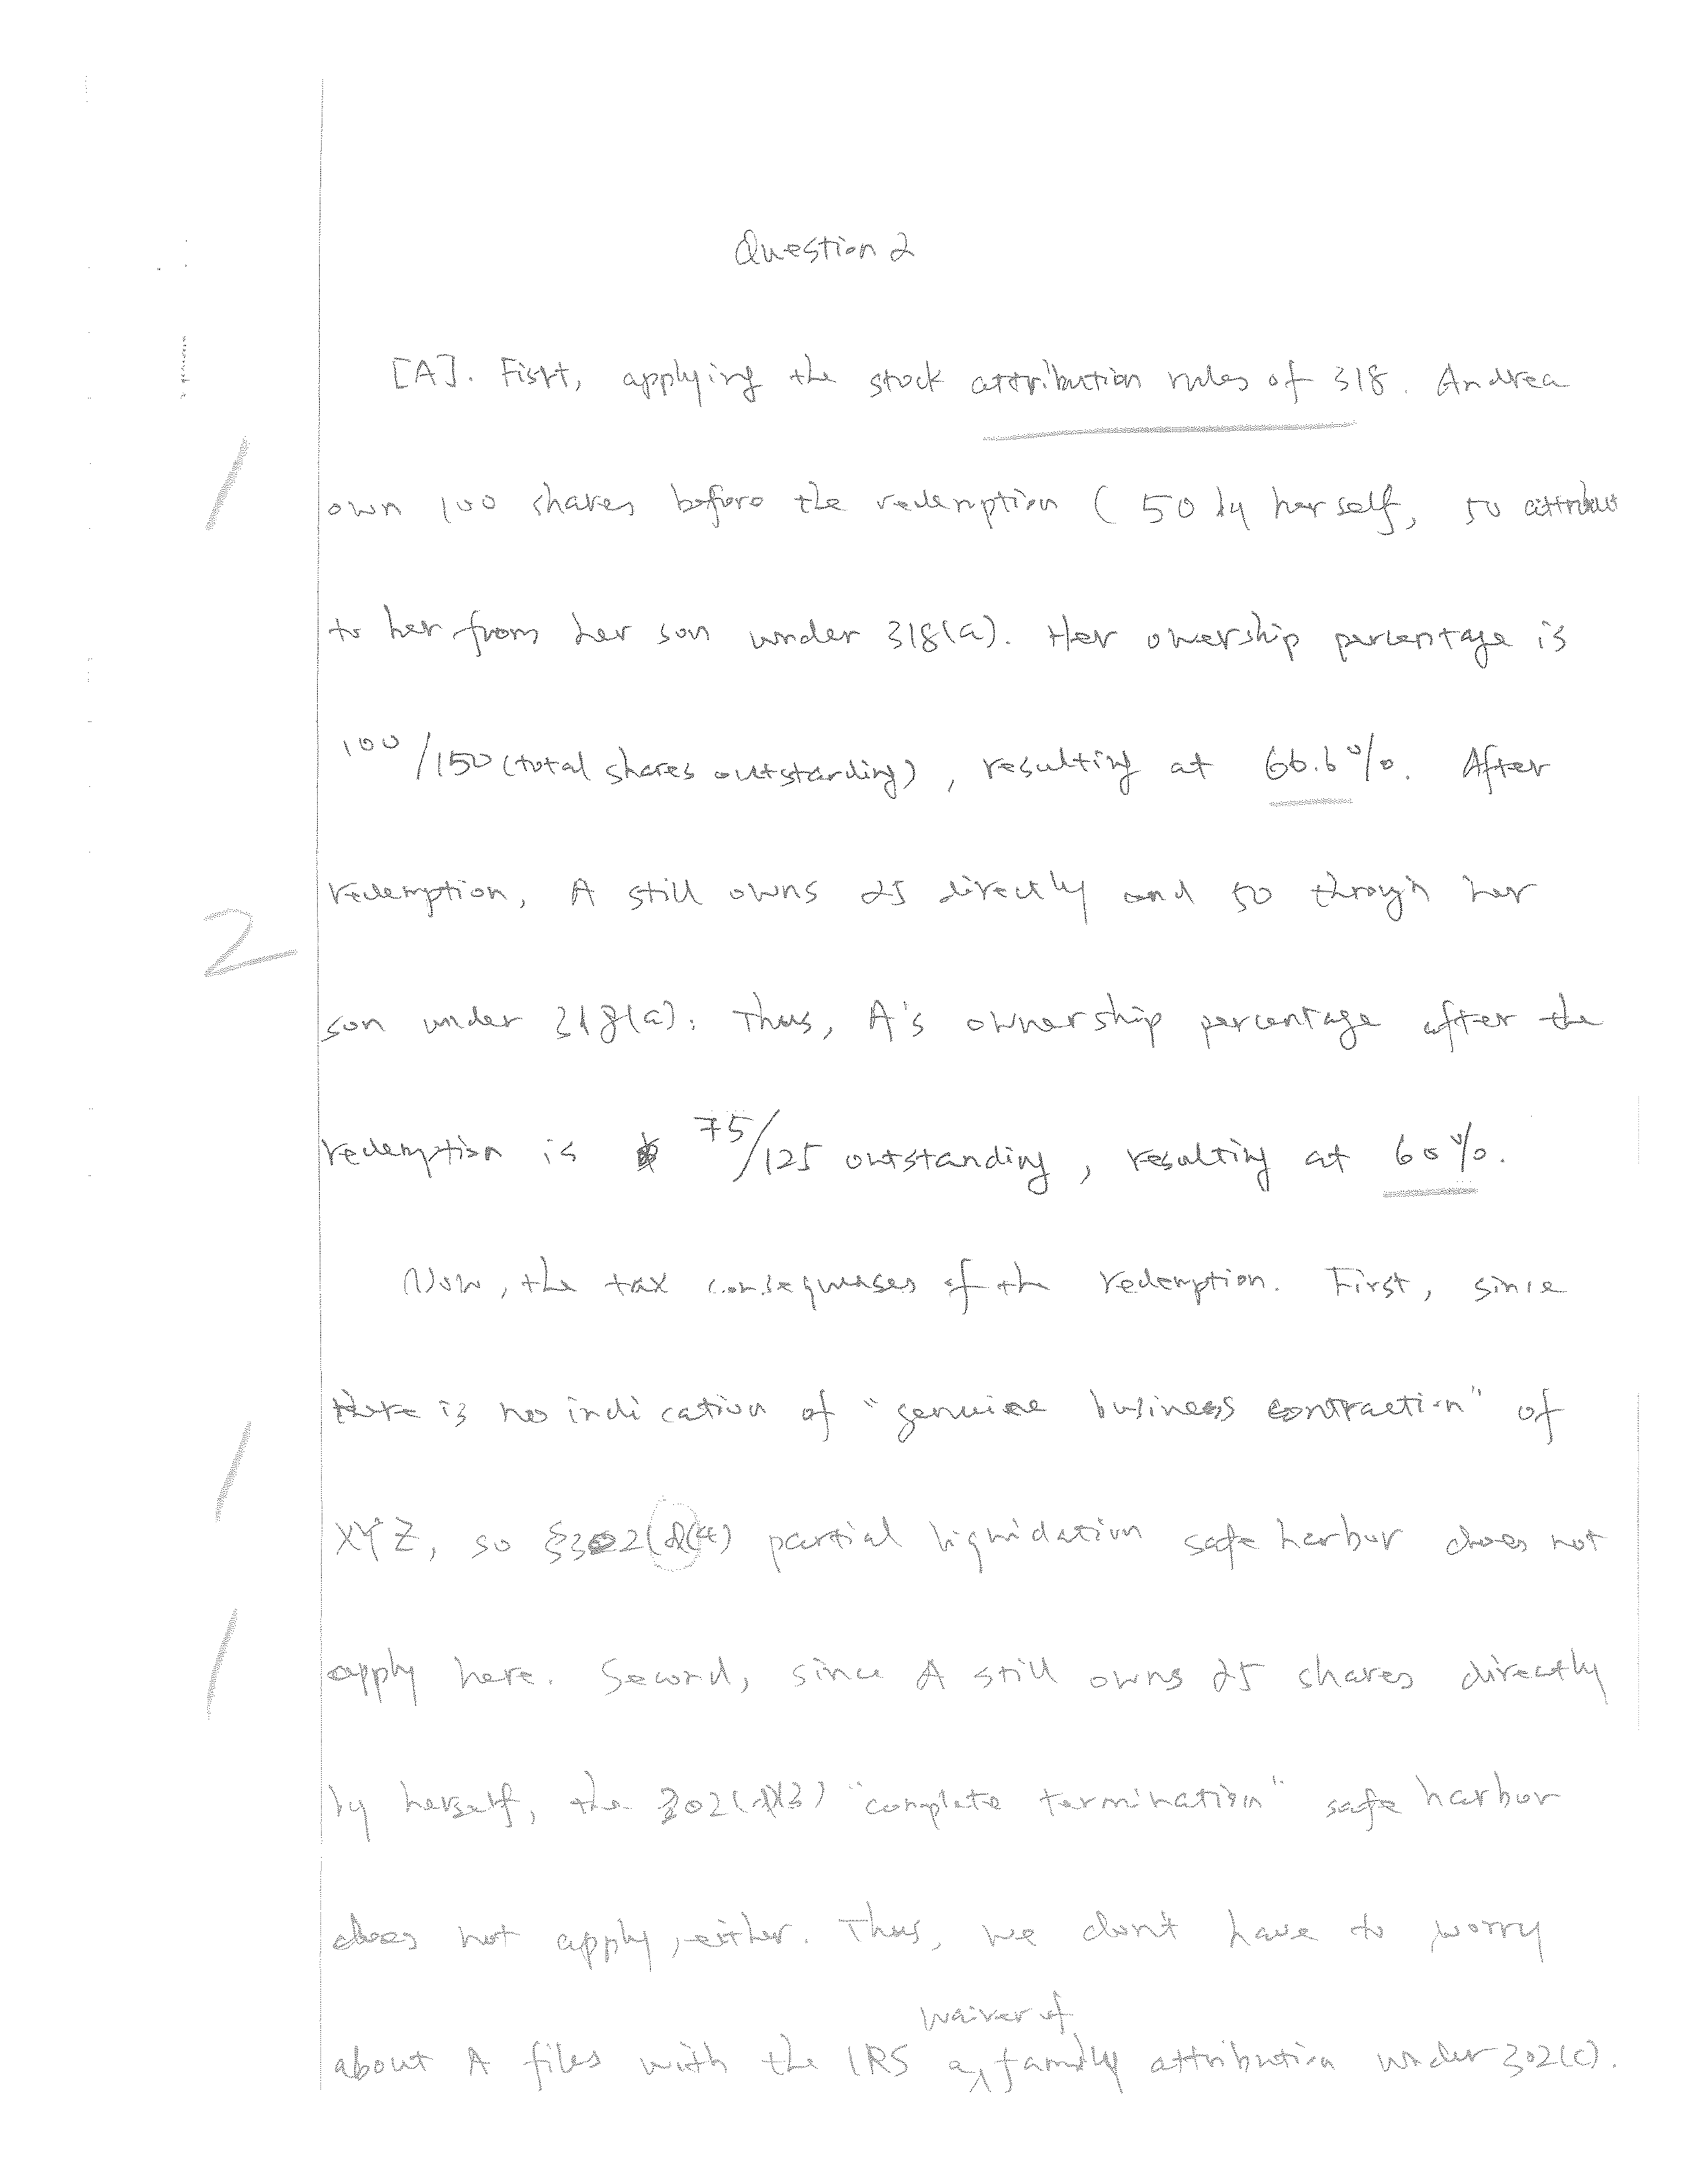 Question 2
[A]. Fisrt, applying the stock attribution rules of 318. Andrea
/
own 100 shares before the redemption (50 by herself, 50 attribut
to her from her son under 318(a). Her owership percentage is
100/150 (total shares outstanding), resulting at 66.6%. After
redemption, A still owns 25 directly and 50 through her
2
son under 318(a). Thus, A's ownership percentage after the
redemption is 75/125 outstanding, resulting at 60%.
Now, the tax consequenses of th redemption. First, since
there is no indication of "genuine business contraction" of
/
XYZ, so §302(b)(4) partial liquidation safe harbor does not
/
apply here. Second, since A still owns 25 shares directly
by herself, the 302(b)(3) "complete termination" safe harbor
does not apply, either. Thus, we don't have to worry
about A files with the IRS a waiver of family attribution under 302(c).